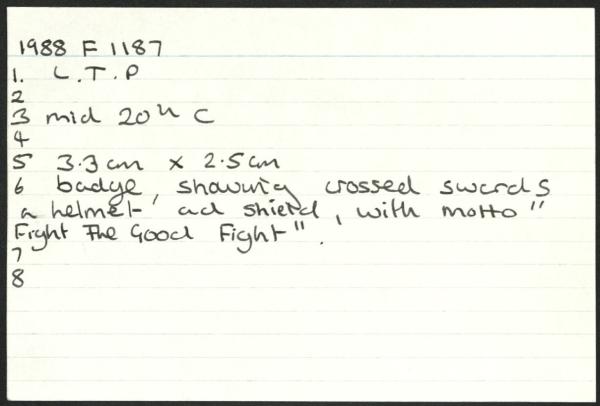 1988 F 1187
1. L.T.P
2
3 mid 20th C
4
5 3.3cm x 2.5cm
6 badge, showing crossed swords
a helmet, ad shield, with motto "
Fight The Good Fight".
7
8